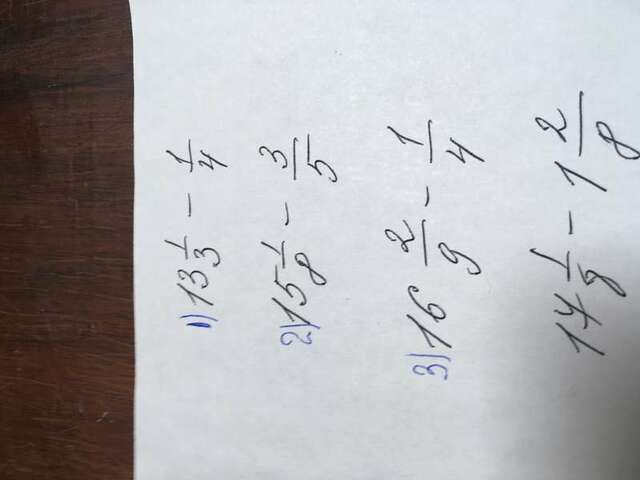 1) 13 1/3 - 1/4
2) 15 1/8 - 3/5
3) 16 2/9 - 1/4
14 1/8 - 1 2/8